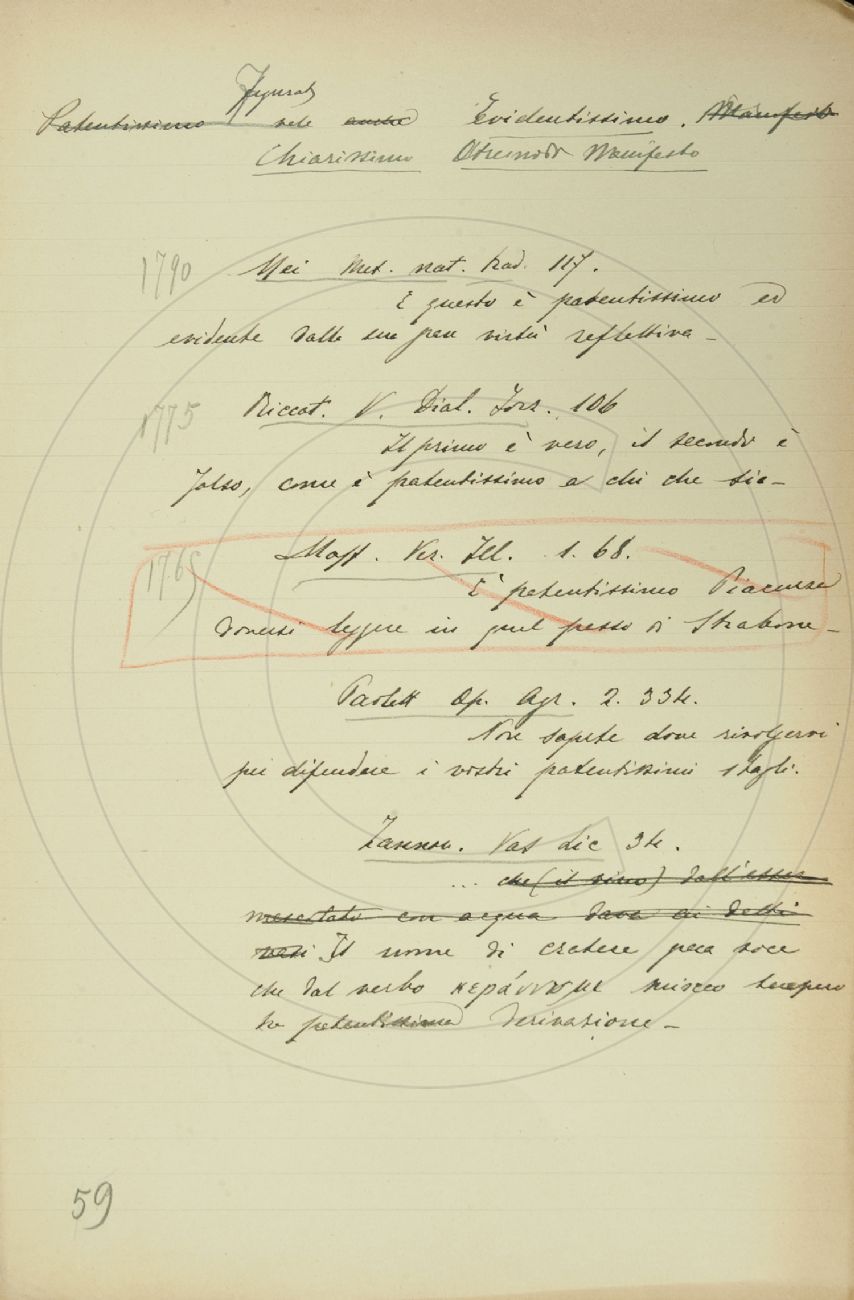 Figurat
Patentissimo vale anche Evidentissimo. Manifesto
Chiarissimo Oltremodo Manifesto
1790 Mei Met. nat. trad. 117.
E questo è patentissimo ed
evidente dalla sua virtù reflettiva –
1775 Riccat. V. Dial. Forz. 106
Il primo è vero, il secondo è
falso, come è patentissimo a chi che sia –
1765 Maff. Ver. Ill. 1. 68.
È patentissimo Piacenza
doversi leggere in quel passo di Strabone –
Paolett Op. Agr. 2. 334.
Non sapete dove rivolgervi
per difendere i vostri patentissimi sbagli.
Zannon. Vas Lic 34.
... che (il vino) dall'esser
mescolato con acqua dava ai detti
vasi Il nome di cratere voce
che dal verbo κεράννυμι misceo tempero
ha patentissima derivazione –
59